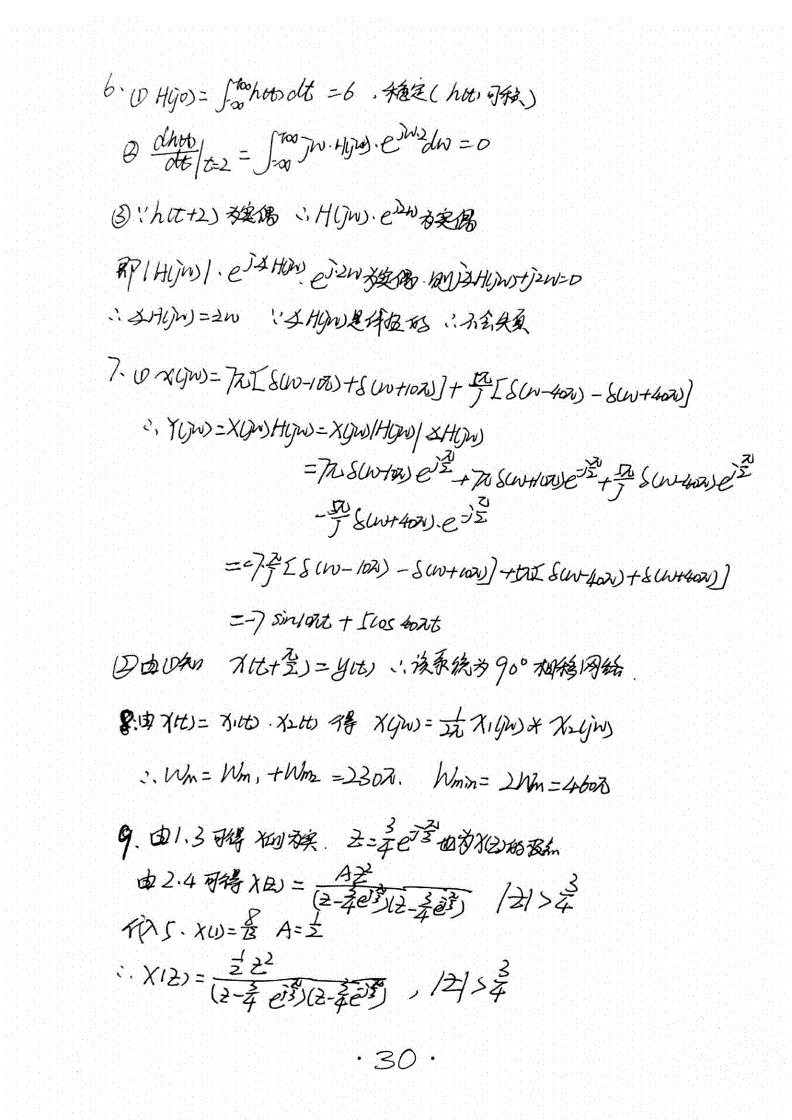 6. ① H(j0)=∫_{-∞}^{+∞}h(t)dt =6 , 稳定(h(t)可积)
② dh(t)/dt|_{t=2} = ∫_{-∞}^{+∞}jw·H(jw)·e^{jw·2}dw=0
③∵h(t+2)为实偶 ∴H(jw)·e^{j2w}为实偶
即|H(jw)|·e^{j∡H(jw)}·e^{j·2w}为实偶.则j∡H(jw)+j2w=0
∴∡H(jw)=2w ∵∡H(jw)是线性的 ∴不会失真
7. ① X(jw)=7π[δ(w-10π)+δ(w+10π)]+5π/j[δ(w-40π)-δ(w+40π)]
∴Y(jw)=X(jw)H(jw)=X(jw)|H(jw)|∡H(jw)
=7πδ(w-10π)e^{jπ/2}+7πδ(w+10π)e^{-jπ/2}+5π/j δ(w-40π)e^{jπ/2}
-5π/j δ(w+40π)·e^{-jπ/2}
=-7π/j[δ(w-10π)-δ(w+10π)]+5π[δ(w-40π)+δ(w+40π)]
=-7sin10πt+5cos40πt
②由①知 x(t+π/2)=y(t) ∴该系统为90°相移网络.
8.由x(t)=x1(t)·x2(t)得 X(jw)=1/2π X1(jw)*X2(jw)
∴Wm=Wm1+Wm2=230π. Wmin=2Wm=460π
9.由1.3可得x[n]为实. Z=3/4e^{-jπ/3}也为X(z)的极点
由2.4可得X(z)=Az²/((z-3/4e^{jπ/3})(z-3/4e^{-jπ/3})) |z|>3/4
代入5. X(1)=8/13 A=1/2
∴X(z)=1/2z²/((z-3/4e^{jπ/3})(z-3/4e^{-jπ/3})) , |z|>3/4
·30·